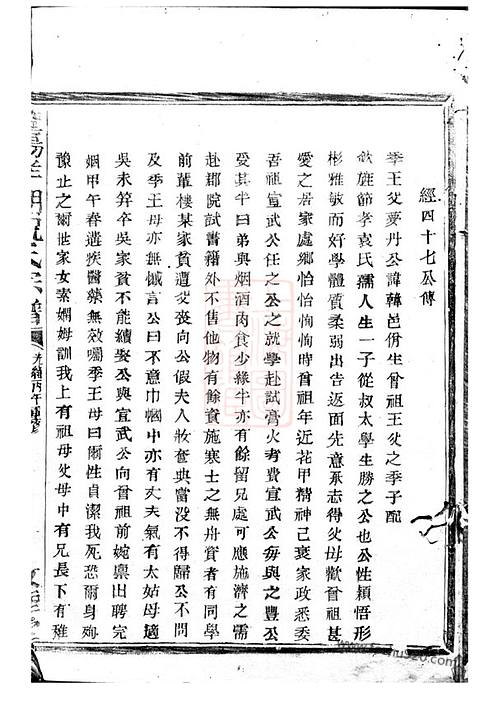 經四十七公傳
季王父夢丹公諱韓邑庠生曾祖王父之季子配
欽旌節孝袁氏孺人生一子從叔太學生勝之公也公性穎悟形
彬雅敏而好學體質柔弱出告返面先意承志得父母歡曾祖甚
愛之居家處鄉怡怡恂恂時曾祖年近花甲精神已衰家政悉委
吾祖宣武公任之公之就學赴試膏火考費宣武公毎與之豐公
受其半曰弟與烟酒肉食少緣半亦有餘留兄處可應施濟之需
赴郡院試書籍外不售他物有餘資施寒士之無舟資者有同學
前輩樓某家貧遭父喪向公假夫人妝奩典當沒不得歸公不問
及季王母亦無慽言公曰不意巾幗中亦有丈夫氣有太姑母適
吳未笄卒吳家貧不能續娶公與宣武公向曾祖前婉禀出聘完
姻甲午春遘疾醫藥無效囑季王母曰爾性貞潔我死恐爾身殉
豫止之爾世家女素嫻姆訓我上有祖母父母中有兄長下有稚
光緒丙午重修